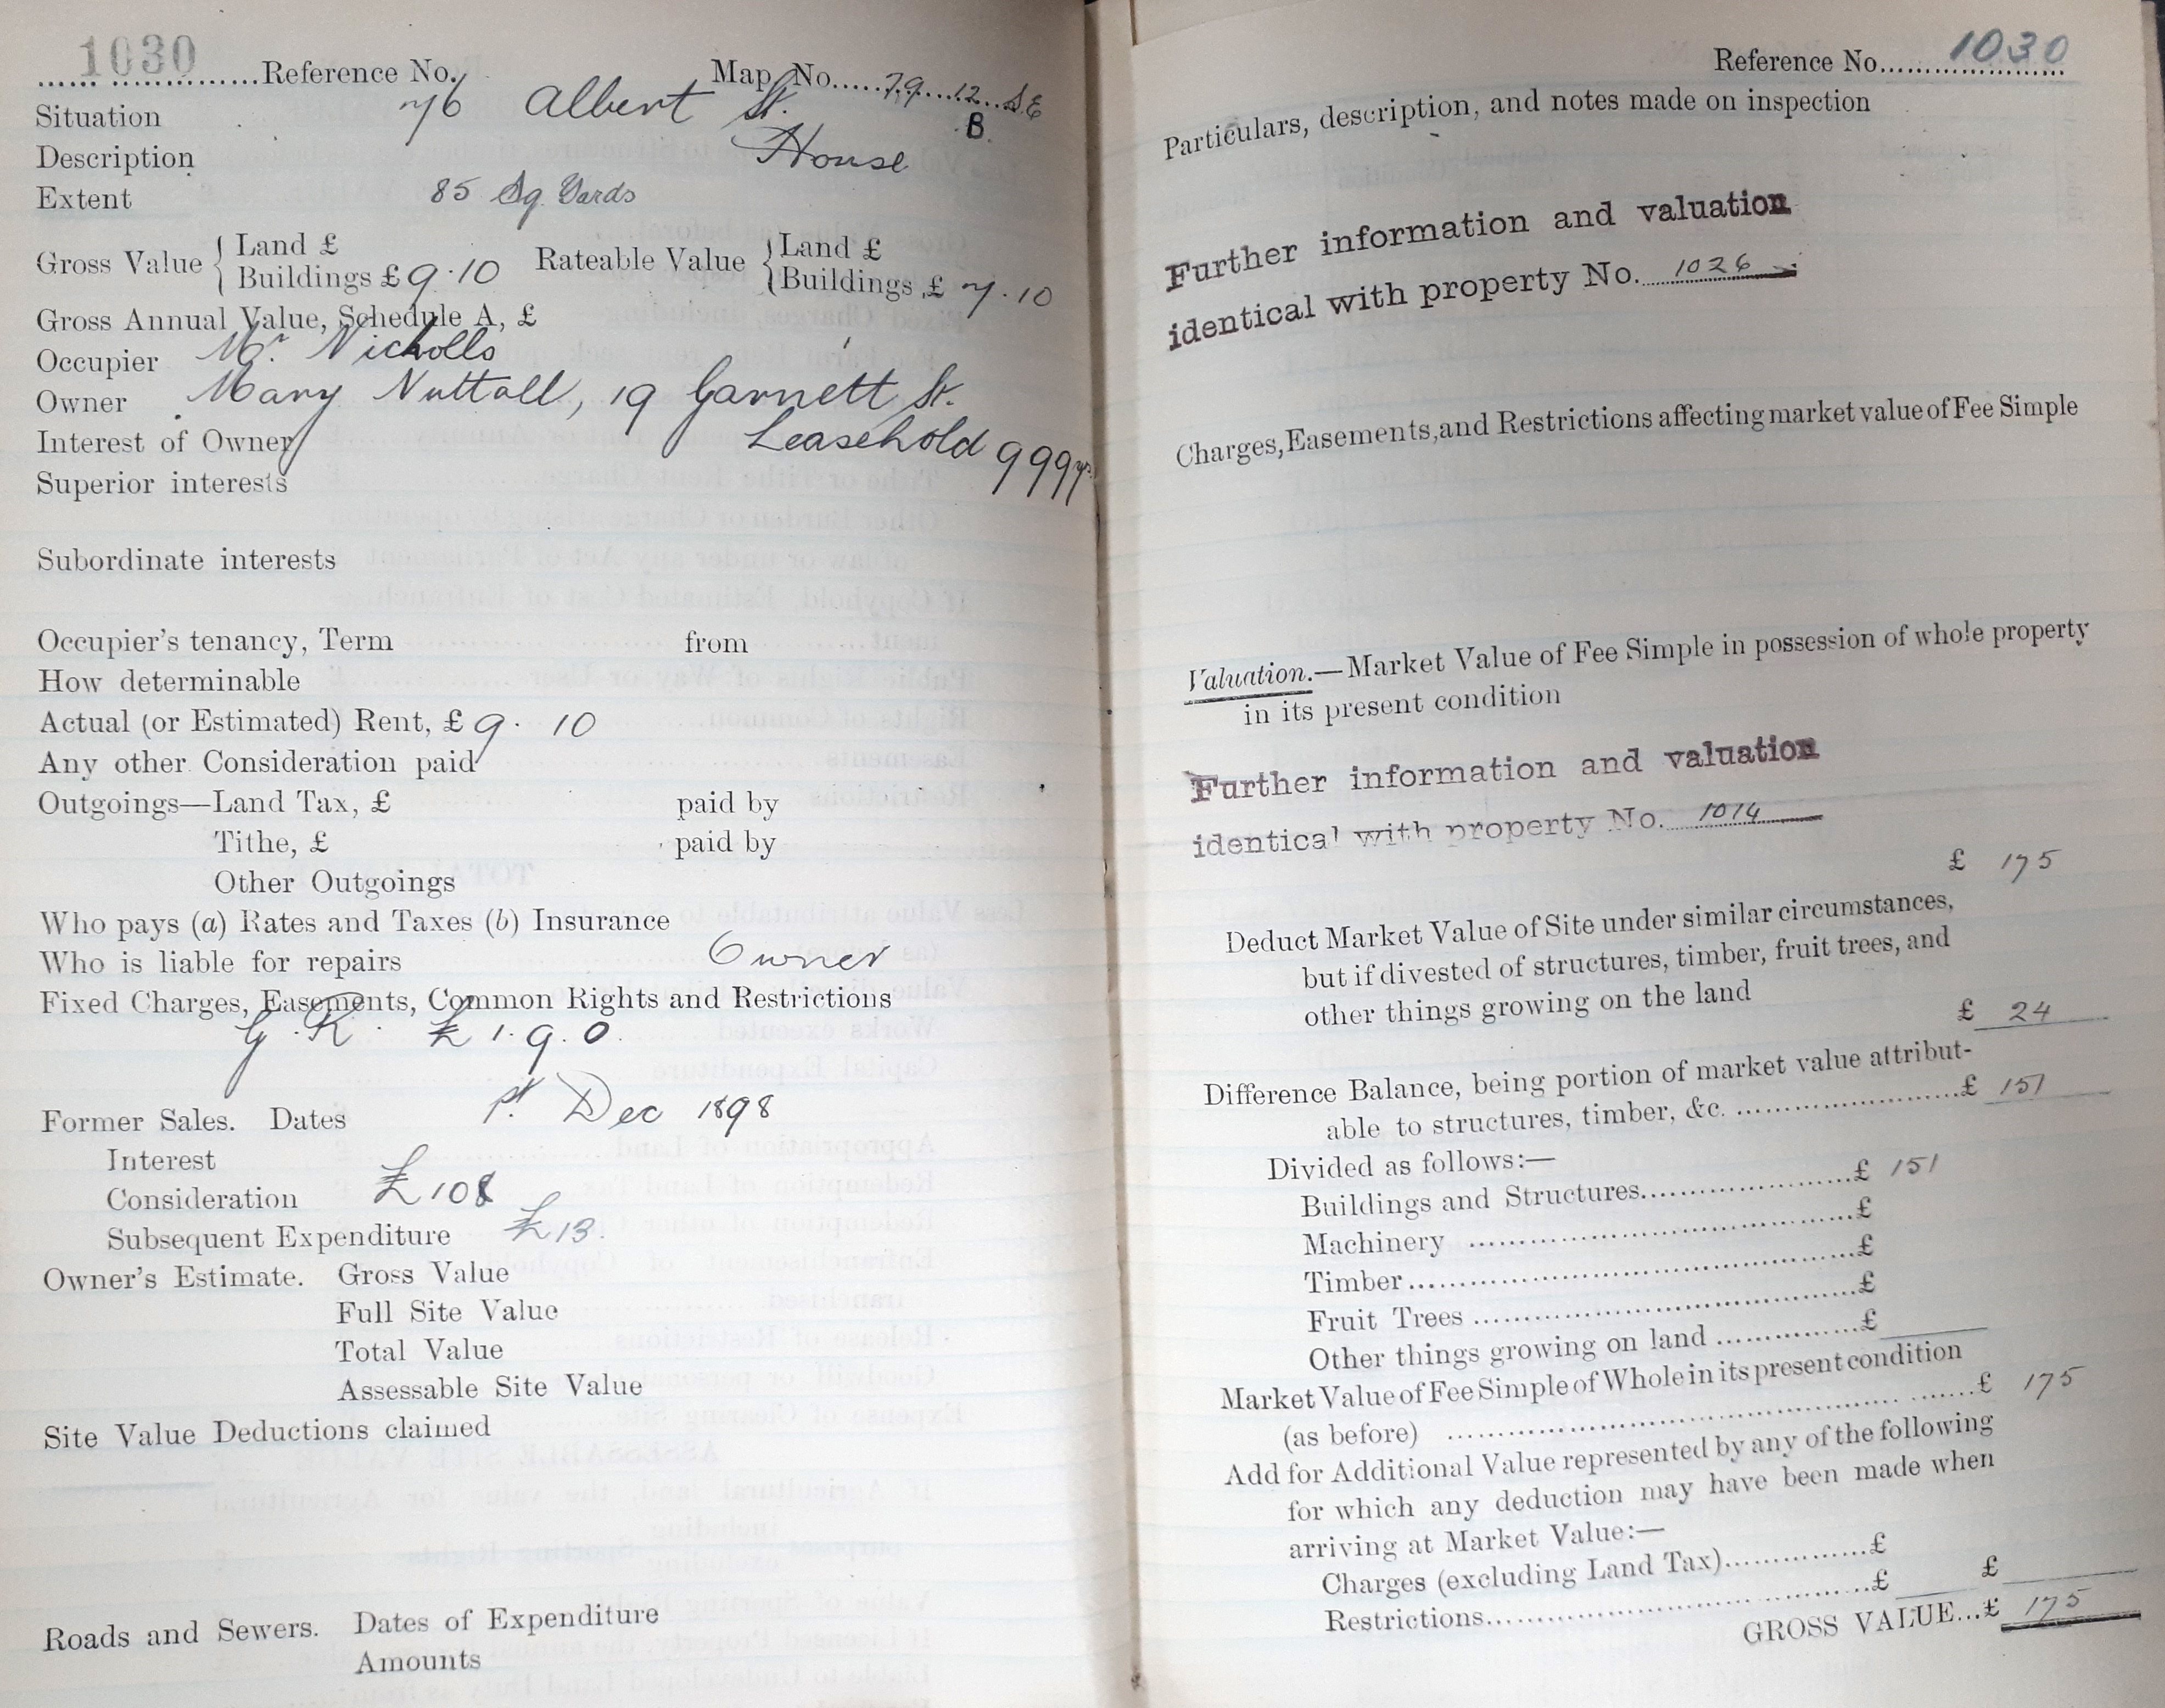 1030 Reference No. Map No. 79 12 S E
B.
Situation 76 Albert St.
Description House
Extent 85 Sq. Yards
Gross Value { Land £ Rateable Value { Land £
Buildings £ 9.10 Buildings £ 7.10
Gross Annual Value, Schedule A, £
Occupier Mr. Nicholls
Owner Mary Nuttall, 19 Garnett St.
Interest of Owner Leasehold 999 yr.
Superior interests
Subordinate interests
Occupier's tenancy, Term from
How determinable
Actual (or Estimated) Rent, £ 9. 10
Any other Consideration paid
Outgoings—Land Tax, £ paid by
Tithe, £ paid by
Other Outgoings
Who pays (a) Rates and Taxes (b) Insurance
Who is liable for repairs Owner
Fixed Charges, Easements, Common Rights and Restrictions
G. R. £ 1. 9. 0.
Former Sales. Dates Dec 1898
Interest
Consideration £108
Subsequent Expenditure £13.
Owner's Estimate. Gross Value
Full Site Value
Total Value
Assessable Site Value
Site Value Deductions claimed
Roads and Sewers. Dates of Expenditure
Amounts
Reference No. 1030
Particulars, description, and notes made on inspection
Further information and valuation
identical with property No. 1026
Charges, Easements, and Restrictions affecting market value of Fee Simple
Valuation.—Market Value of Fee Simple in possession of whole property
in its present condition
Further information and valuation
identical with property No. 1014
£ 175
Deduct Market Value of Site under similar circumstances,
but if divested of structures, timber, fruit trees, and
other things growing on the land
£ 24
Difference Balance, being portion of market value attribut-
able to structures, timber, &c. £ 151
Divided as follows:—
Buildings and Structures £ 151
Machinery £
Timber £
Fruit Trees £
Other things growing on land £
Market Value of Fee Simple of Whole in its present condition
(as before) £ 175
Add for Additional Value represented by any of the following
for which any deduction may have been made when
arriving at Market Value:—
Charges (excluding Land Tax) £
Restrictions £ £
GROSS VALUE...£ 175